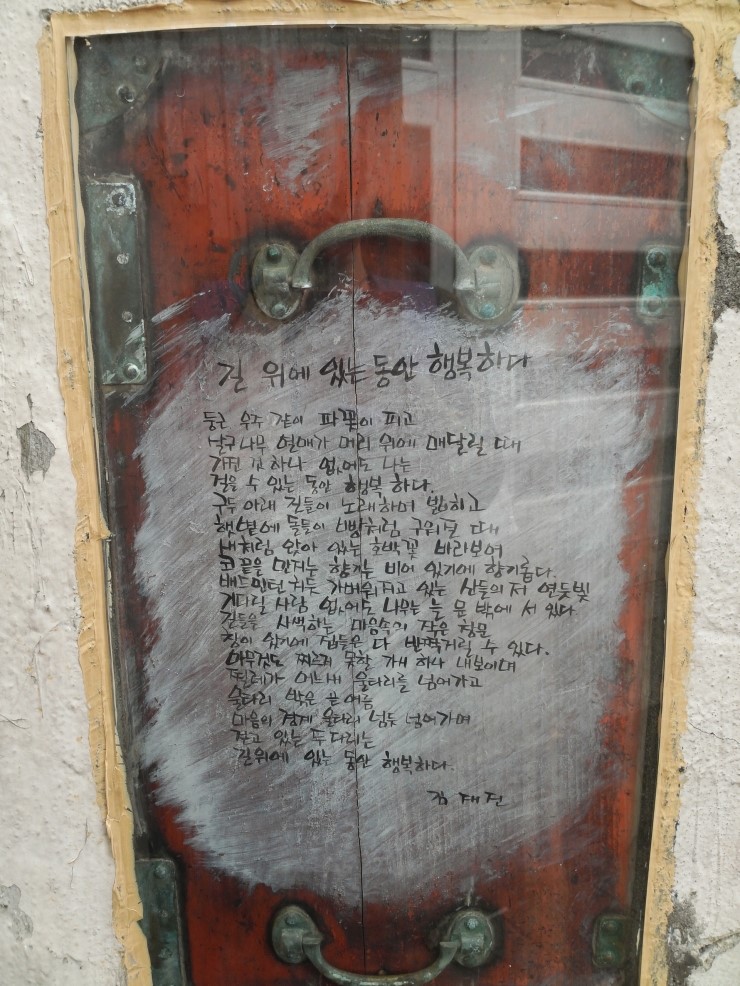 길 위에 있는 동안 행복하다
둥근 우주 같이 파꽃이 피고
살구나무 열매가 머리 위에 매달릴 때
가진 것 하나 없어도 나는
걸을 수 있는 동안 행복 하다.
구두 아래 길들이 노래하며 밟히고
햇볕에 돌들이 빵처럼 구워질 때
새처럼 앉아 있는 호박꽃 바라보며
코 끝을 만지는 향기는 비어 있기에 향기롭다.
배드민턴 치듯 가벼워지고 있는 산들의 저 연둣빛
기다릴 사람 없어도 나무는 늘 문 밖에 서 있다
길들을 사색하는 마음속의 작은 창문
창이 있기에 집들은 다 반짝거릴 수 있다.
아무것도 찌르지 못할 가시 하나 내보이며
찔레가 어느새 울타리를 넘어가고
울타리 밖은 곧 여름
마음의 경계 울타리 넘듯 넘어가며
걷고 있는 두 다리는
길위에 있는 동안 행복하다.
김재진